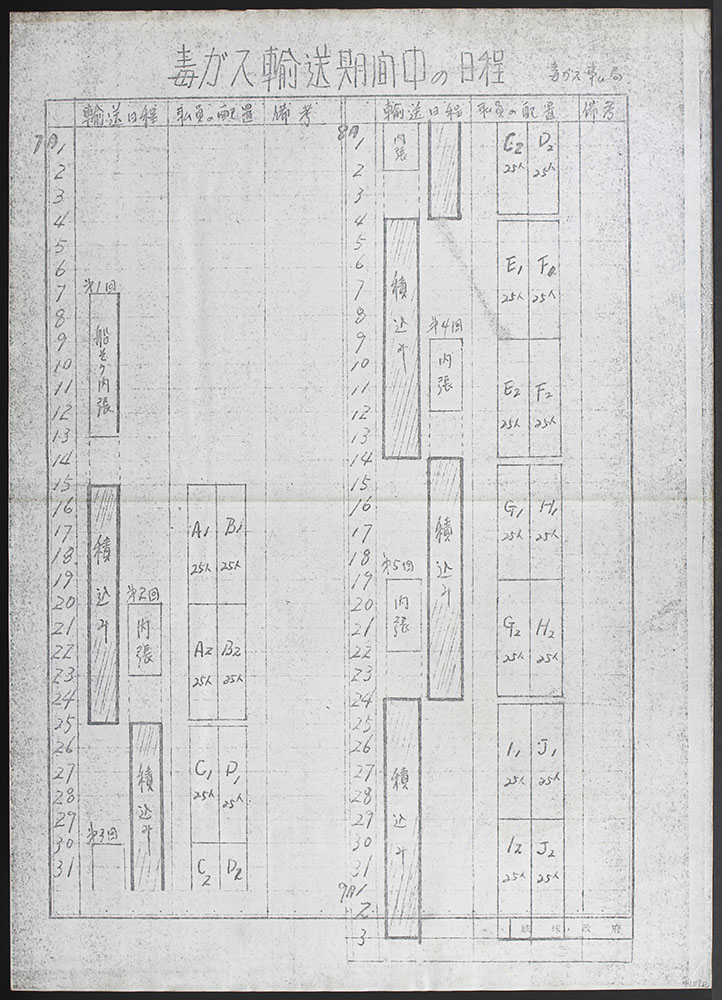 毒ガス輸送期間中の日程
毒ガス
輸送日程 職員の配置 備考
7月1
2
3
4
5
6
7 第1回
8
9 船その内張
10
11
12
13
14
15
16 積込み A1 B1
17
18 25人 25人
19
20 第2回
21 内張 A2 B2
22
23 25人 25人
24
25
26
27 積込み C1 D1
28 25人 25人
29
30 第3回
31 C2 D2
輸送日程 職員の配置 備考
8月1 内張 C2 D2
2 25人 25人
3
4
5
6 E1 F1
7 積込み 25人 25人
8
9 第4回
10 内張
11 E2 F2
12 25人 25人
13
14
15
16 G1 H1
17 積込み 25人 25人
18
19 第5回
20 内張
21 G2 H2
22 25人 25人
23
24
25
26 I1 J1
27 積込み 25人 25人
28
29
30 I2 J2
31 25人 25人
9月1
2
3 琉球政府